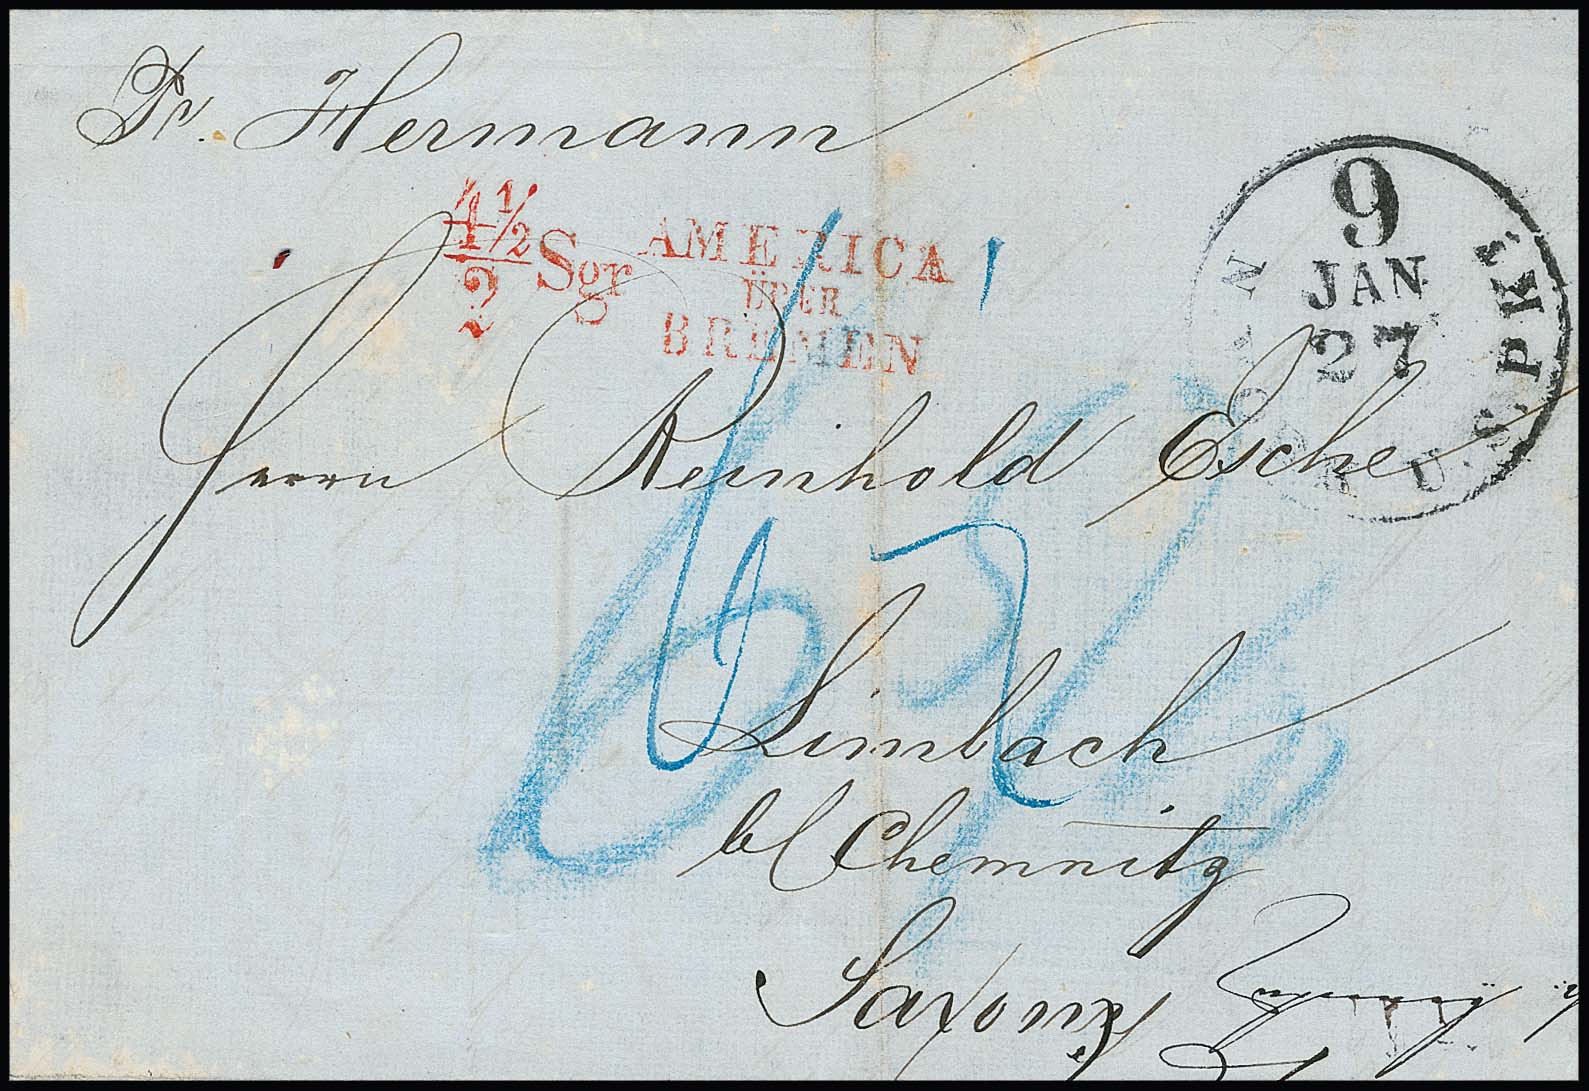 Pr. Hermann
4½/2 Sgr
AMERICA
ÜBER
BREMEN
9
JAN
27
N. YORK U.S. PKT.
Herrn Reinhold Esche
Limbach
b/ Chemnitz
Saxony